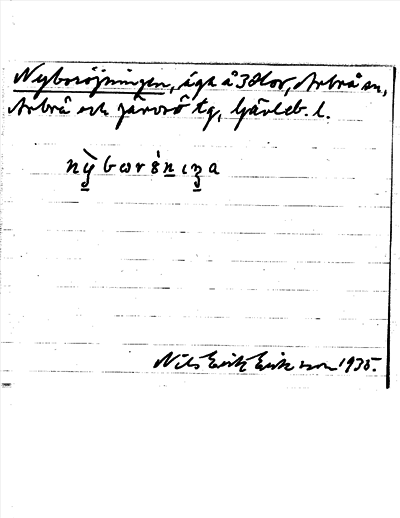 Nyborojningen, äga å 3 Flor, Arbrå sn,
Arbrå och Järvsö tg, Gävleb. l.
Nils Erik Eriksson 1935.